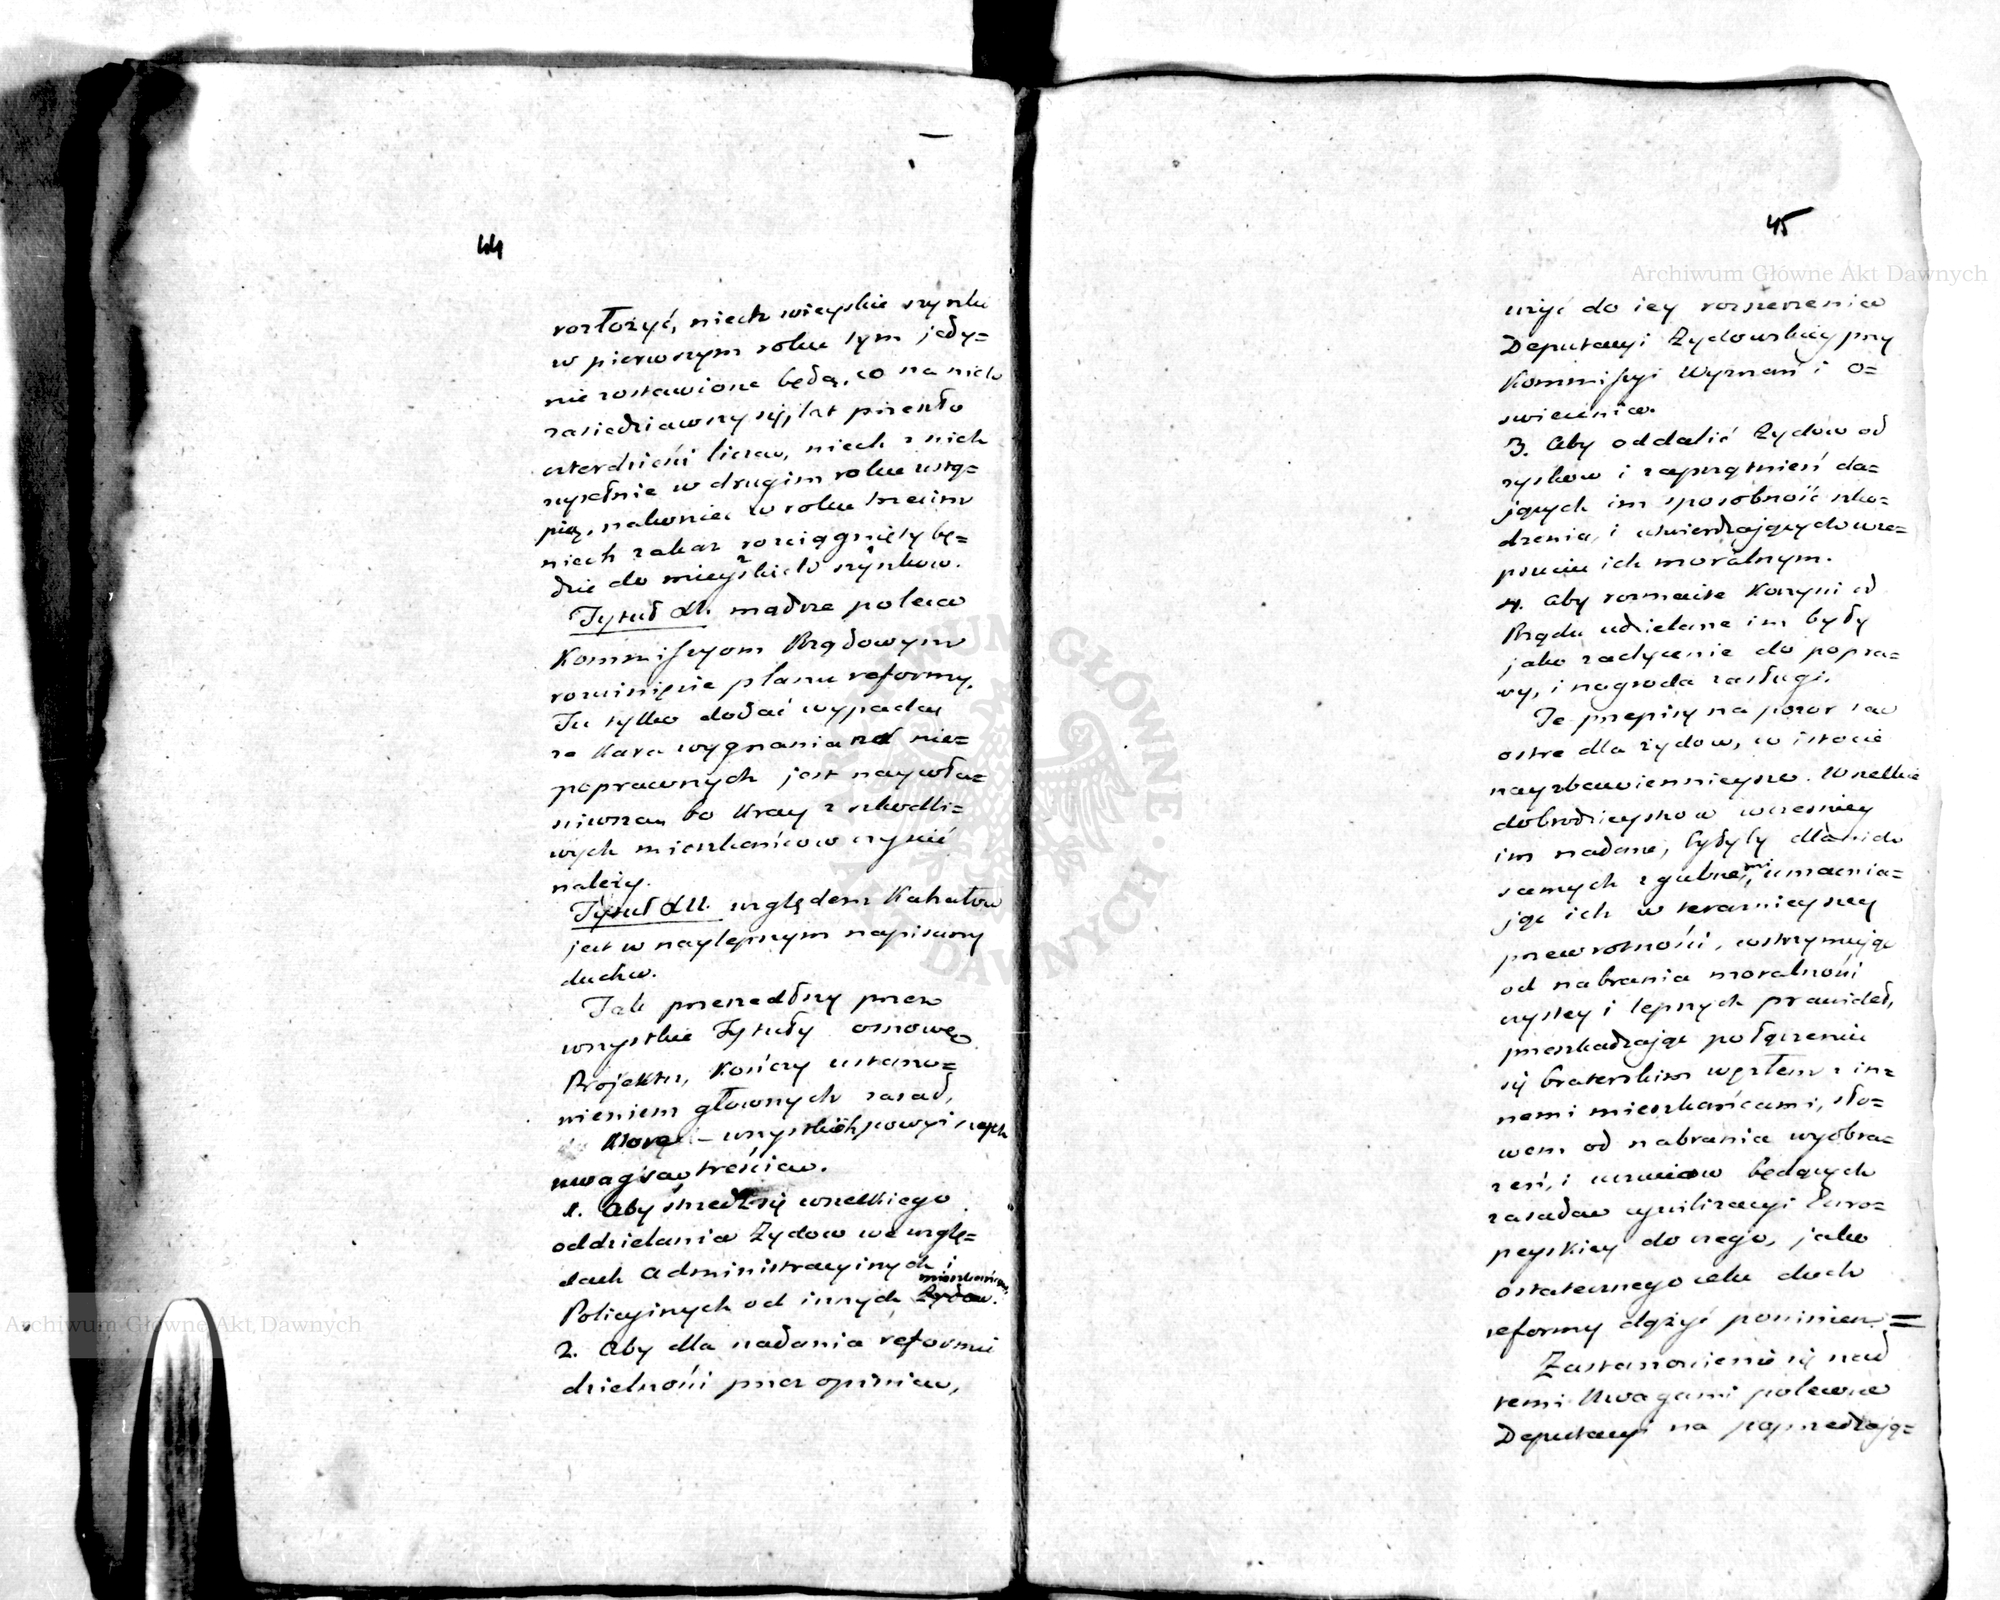 44
rozłożyć, niech wieyskie szynki
w pierwszym roku tym jedy=
nie zostawione będą, co na nich
zasiedziawszy się, lat przeszło
czterdzieści liczą, niech z nich
zupełnie w drugim roku ustą=
pią, nakoniec w roku trzecim
niech zakaz rozciągnięty bę=
dzie do mieyskich szynków.
Tytuł XI. mądrze poleca
Kommissyom Rządowym
rozwinięcie planu reformy.
Tu tylko dodać wypada,
że kara wygnania nie=
poprawnych jest naywła=
ściwszą, bo Kray z szkodli=
wych mieszkańców czyścić
należy.
Tytuł XII. względem Kahałów
jest w naylepszym napisany
duchu.
Tak przeszedłszy przez
wszystkie Tytuły osnowę
Projektu, kończy ustano=
wieniem głównych zasad,
które wszystkich powyższych
uwag są treścią.
1. Aby strzedz się wszelkiego
oddzielania Żydów we wzglę=
dach administracyjnych i
Policyjnych od innych mieszkańców.
2. Aby dla nadania reformie
dzielności przez opinią,
45
użyć do iey rozszerzenia
Deputacyi Żydowskiey przy
Kommissyi Wyznań i O=
świecenia.
3. Aby oddalić Żydów od
zysków i zaprzątnień da=
jących im sposobność szko=
dzenia, i utwierdzających w ze=
psuciu ich moralnym.
4. Aby rozmaite korzyści od
Rządu udzielane im były
jako zachęcenie do popra=
wy, i nagroda zasługi.
Te przepisy na pozór są
ostre dla żydów, w istocie
nayzbawiennieysze. Wszelkie
dobrodzieystwa wcześniey
im nadane, byłyby dla nich
samych zgubnemi, umacnia=
jąc ich w terazniejszey
przewrotności, wstrzymując
od nabrania moralności
czystey i lepszych prawideł,
przeszkadzając połączeniu
się braterskim węzłem z in=
nemi mieszkańcami, sło=
wem od nabrania wyobra=
żeń, i uczuciow będących
zasadą cywilizacyi Euro=
peyskiey do czego, jako
ostatecznego celu duch
reformy dążyć powinien. =
Zastanowienie się nad
temi Uwagami poleca
Deputacyi na poprzedzają=